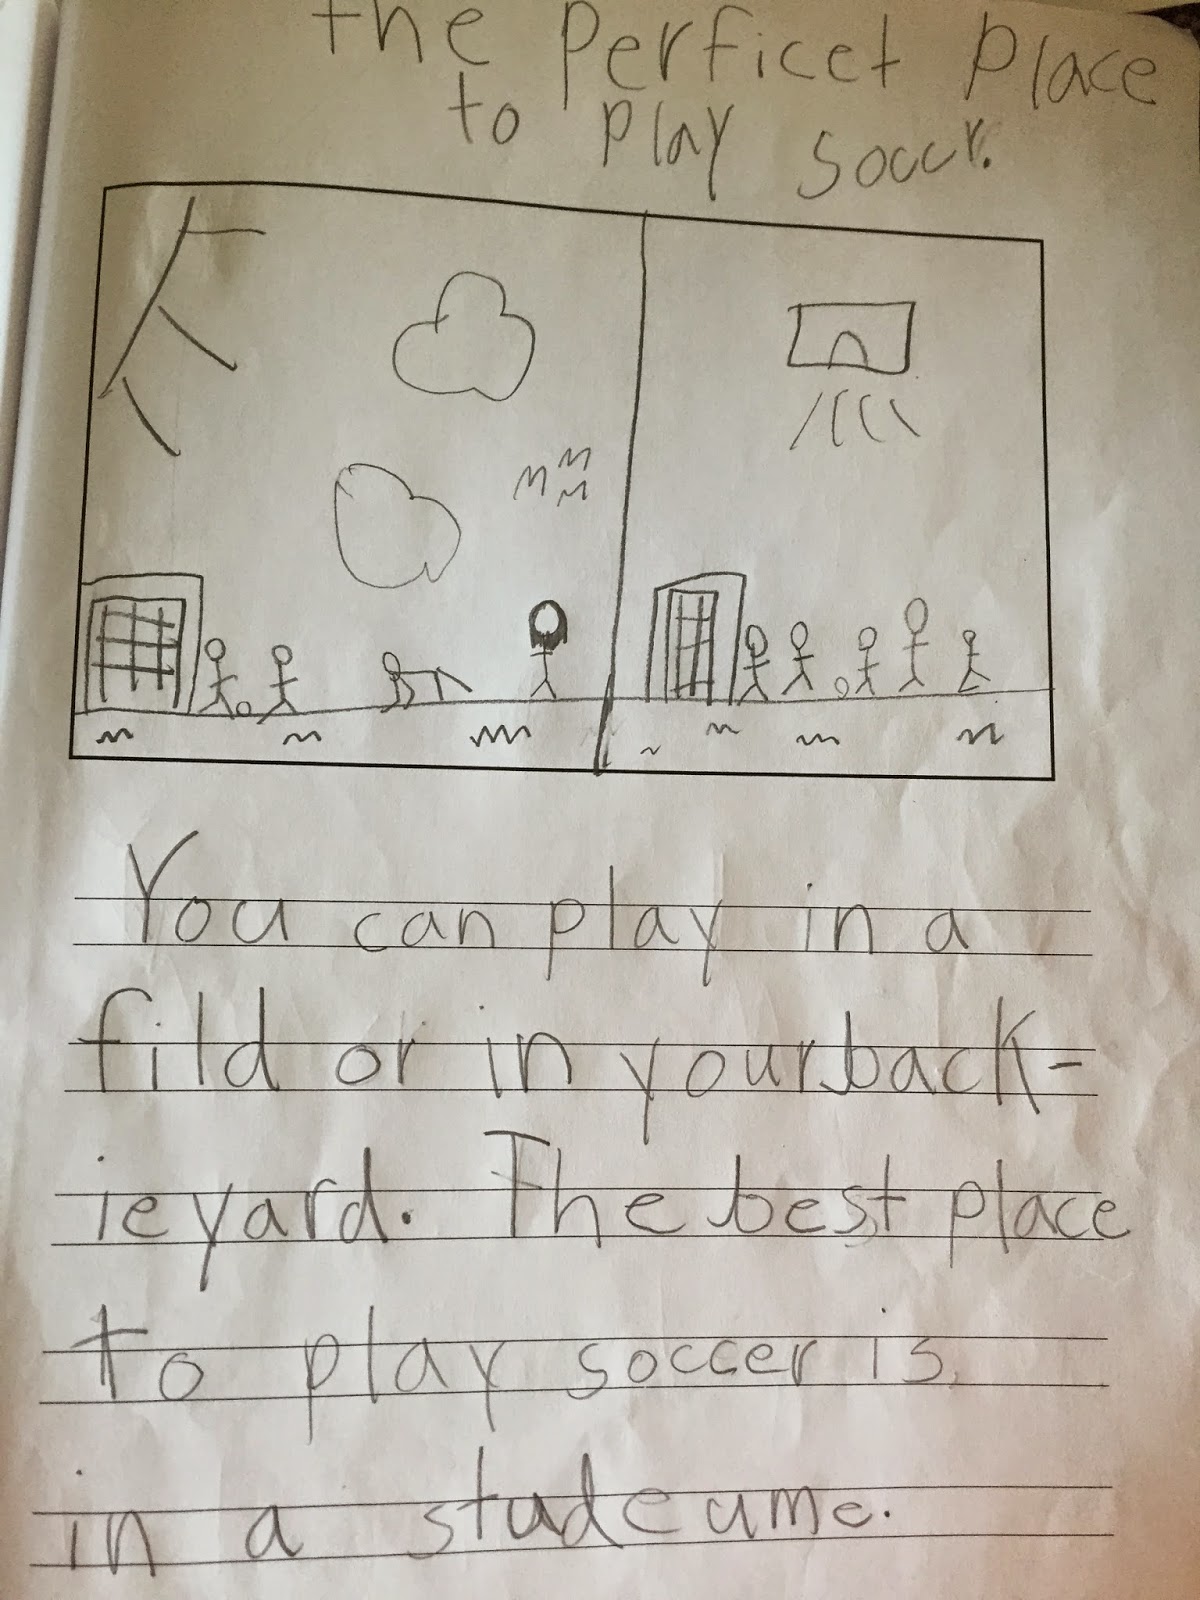 the perficet place
to play soccr.
You can play in a
fild or in your back-
ieyard. The best place
to play soccer is
in a studeume.